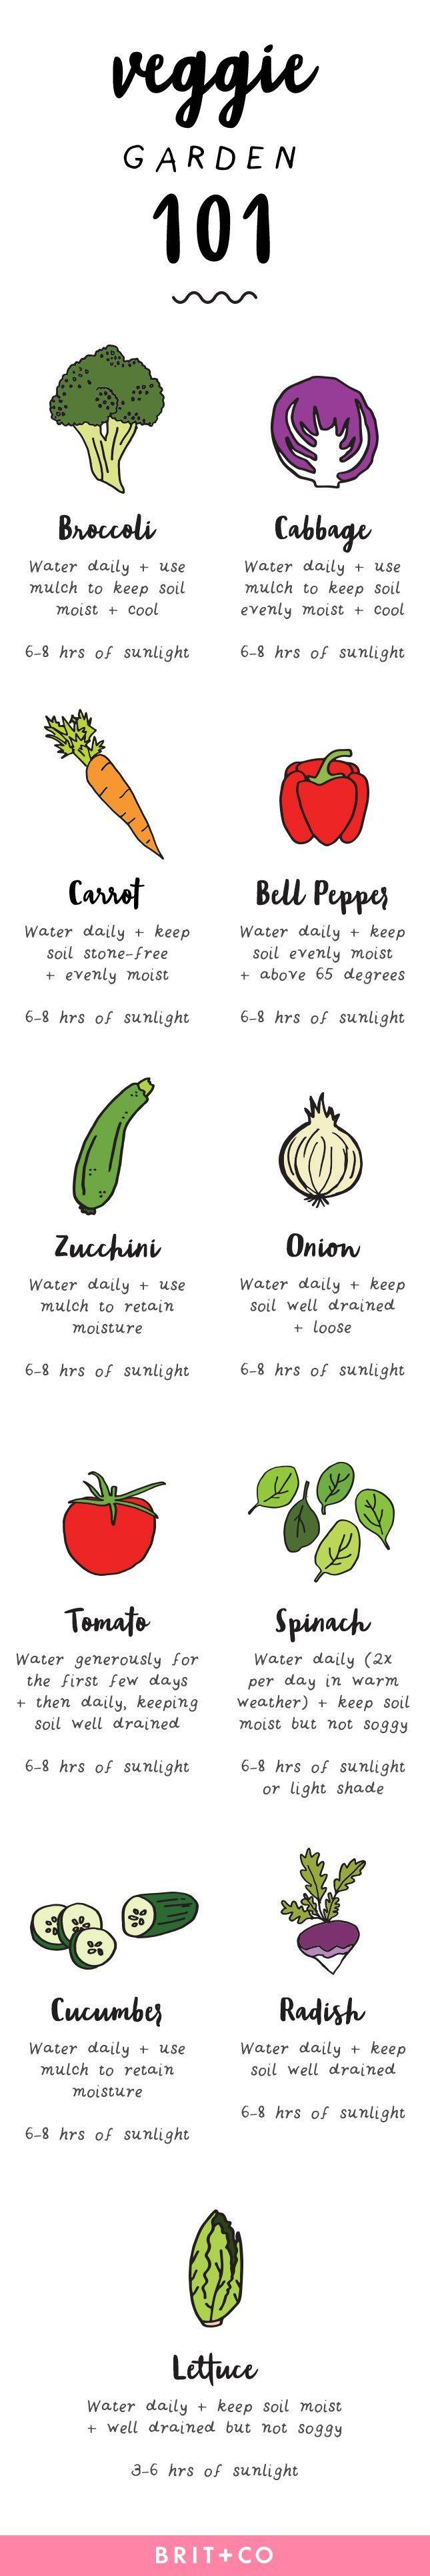 veggie
GARDEN
101
Broccoli
Water daily + use
mulch to keep soil
moist + cool
6-8 hrs of sunlight
Cabbage
Water daily + use
mulch to keep soil
evenly moist + cool
6-8 hrs of sunlight
Carrot
Water daily + keep
soil stone-free
+ evenly moist
6-8 hrs of sunlight
Bell Pepper
Water daily + keep
soil evenly moist
+ above 65 degrees
6-8 hrs of sunlight
Zucchini
Water daily + use
mulch to retain
moisture
6-8 hrs of sunlight
Onion
Water daily + keep
soil well drained
+ loose
6-8 hrs of sunlight
Tomato
Water generously for
the first few days
+ then daily, keeping
soil well drained
6-8 hrs of sunlight
Spinach
Water daily (2x
per day in warm
weather) + keep soil
moist but not soggy
6-8 hrs of sunlight
or light shade
Cucumber
Water daily + use
mulch to retain
moisture
6-8 hrs of sunlight
Radish
Water daily + keep
soil well drained
6-8 hrs of sunlight
Lettuce
Water daily + keep soil moist
+ well drained but not soggy
3-6 hrs of sunlight
BRIT+CO